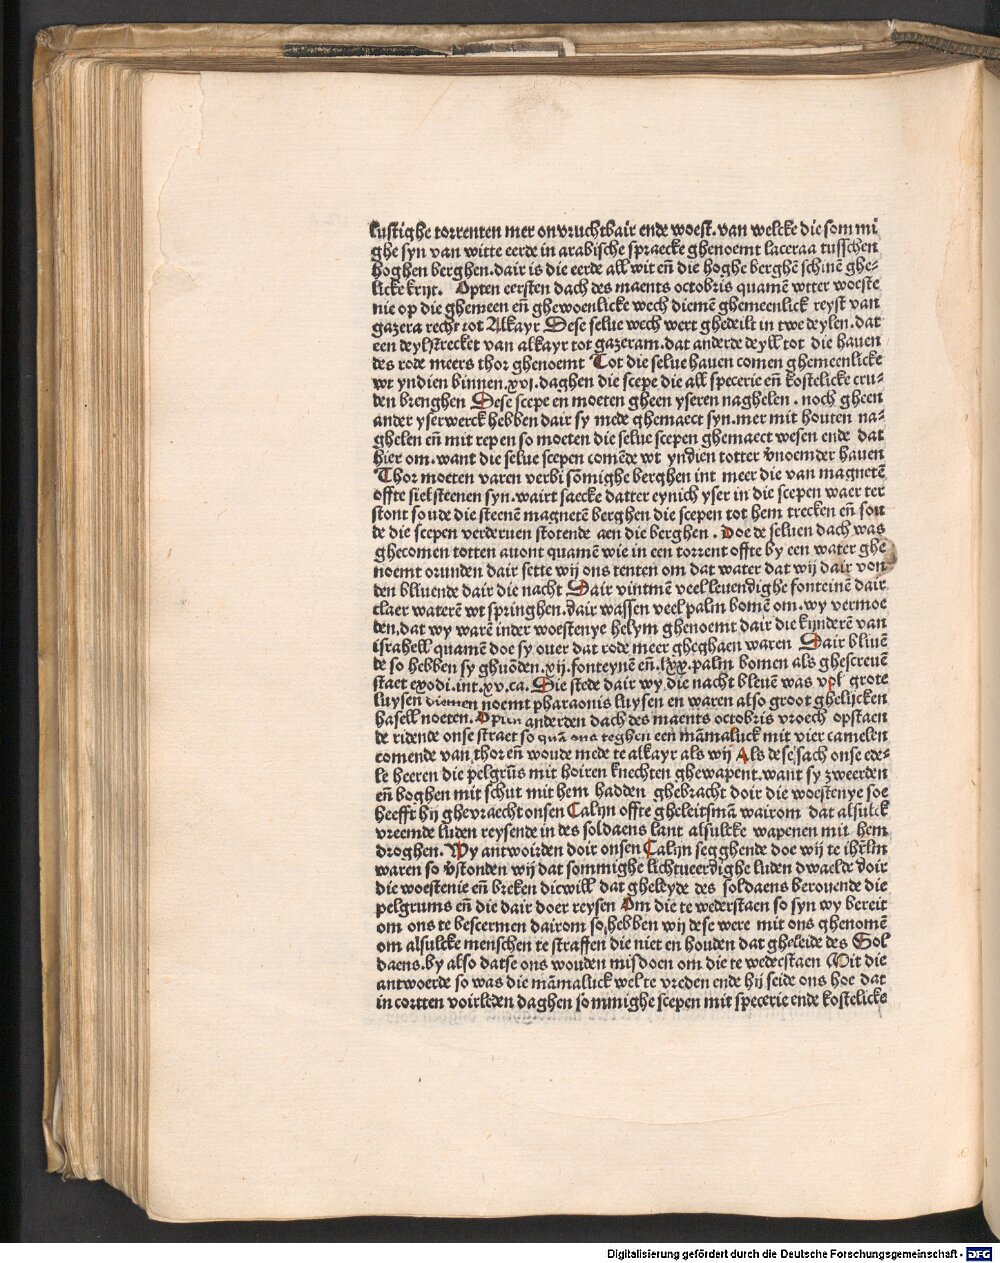 lustighe torrenten mer onvruchtbair ende woest. van welcke die som mi
ghe syn van witte eerde in arabische spraecke ghenoemt laceraa tusschen
hoghen berghen. dair is die eerde all wit eñ die hoghe berghē schinē ghe-
licke krijt. Opten eersten dach des maents octobris quamē wtter woeste
nie op die ghemeen eñ ghewoenlicke wech diemē ghemeenlick reyst van
gazera recht tot Alkayr Dese selue wech wert ghedeilt in twe deylen. dat
een deyl strecket van alkayr tot gazeram. dat anderde deyll tot die hauen
des rode meers thor ghenoemt Tot die selue hauen comen ghemeenlicke
wt yndien binnen .xvj. daghen die scepe die all specerie eñ kostelicke cru-
den brenghen Dese scepe en moeten gheen yseren naghelen . noch gheen
ander yserwerck hebben dair sy mede ghemaect syn. mer mit houten na-
ghelen eñ mit repen so moeten die selue scepen ghemaect wesen ende dat
hier om. want die selue scepen comēde wt yndien totter vnoemder hauen
Thor moeten varen verbi sōmighe berghen int meer die van magnetē
offte sielsteenen syn. wairt saecke datter eynich yser in die scepen waer ter
stont soude die steenē magnetē berghen die scepen tot hem trecken eñ sou
de die scepen verderuen stotende aen die berghen . Doe de seluen dach was
ghecomen totten auont quamē wie in een torrent offte by een water ghe
noemt orunden dair sette wij ons tenten om dat water dat wij dair von
den bliuende dair die nacht Dair vintmē veel leuendighe fonteinē dair
claer waterē wt springhen. dair wassen veel palm bomē om. wy vermoe
den. dat wy warē inder woestenye helym ghenoemt dair die kijnderē van
israhell quamē doe sy ouer dat rode meer gheghaen waren Dair bliuē
de so hebben sy ghuōden .xij. fonteynē eñ .lxx. palm bomen als ghescreuē
staet exodi .int .xv. ca. Die stede dair wy die nacht bleuē was vol grote
luysen diemen noemt pharaonis luysen en waren also groot ghelijcken
hasell noeten. Opten anderden dach des maents octobris vroech opstaen
de ridende onse straet so quā ons teghen een māmaluck mit vier camelen
comende van thor eñ woude mede te alkayr als wij Als dese sach onse ede-
le heeren die pelgrūs mit hoiren knechten ghewapent. want sy zweerden
eñ boghen mit schut mit hem hadden ghebracht doir die woestenye soe
heefft hij ghevraecht onsen Calijn offte gheleitsmā wairom dat alsulck
vreemde luden reysende in des soldaens lant alsulcke wapenen mit hem
droghen. Wy antwoirden doir onsen Calijn segghende doe wij te ihrlm
waren so vstonden wij dat sommighe lichtueerdighe luden dwaelde doir
die woestenie eñ breken dicwill dat gheleyde des soldaens berouende die
pelgrums eñ die dair doer reysen Om die te wederstaen so syn wy bereit
om ons te bescermen dairom so hebben wij dese were mit ons ghenomē
om alsulcke menschen te straffen die niet en houden dat gheleide des Sol
daens. by also datse ons wouden misdoen om die te wedecstaen Mit die
antwoerde so was die māmaluck wel te vreden ende hij seide ons hoe dat
in cortten voirleden daghen so mmighe scepen mit specerie ende kostelicke
Digitalisierung gefördert durch die Deutsche Forschungsgemeinschaft - DFG